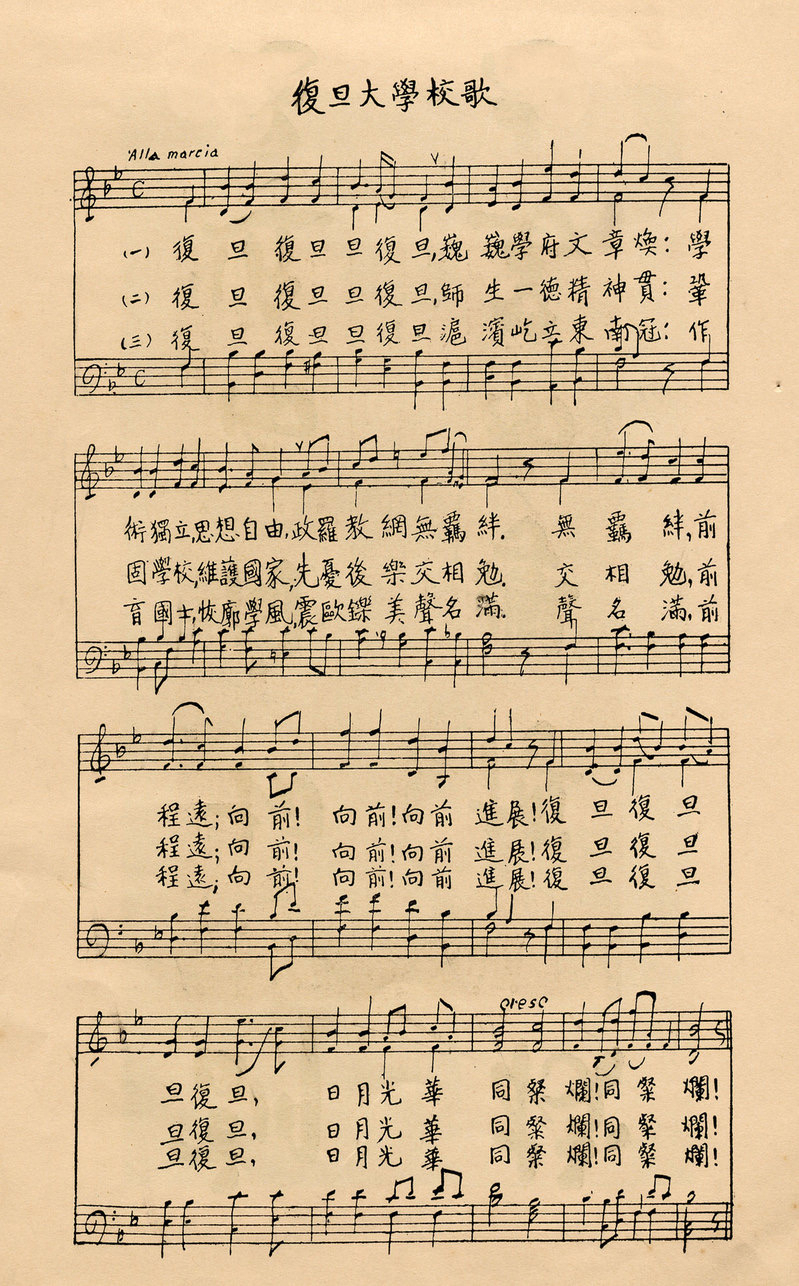 復旦大學校歌
Alla marcia
(一) 復 旦 復旦旦復旦,巍 巍學府文章煥: 學
(二) 復 旦 復旦旦復旦,師 生一德精神貫: 鞏
(三) 復 旦 復旦旦復旦滬 濱屹立東南冠: 作
術獨立,思想自由,政羅教網無羈絆. 無 羈 絆,前
固學校,維護國家,先憂後樂交相勉. 交 相 勉,前
育國士,恢廓學風,震歐鑠美聲名滿. 聲 名 滿,前
程遠;向 前! 向前!向前 進展!復 旦 復 旦
程遠;向 前! 向前!向前 進展!復 旦 復 旦
程遠;向 前! 向前!向前 進展!復 旦 復 旦
cresc
旦復旦, 日月光華 同粲爛!同粲爛!
旦復旦, 日月光華 同粲爛!同粲爛!
旦復旦, 日月光華 同粲爛!同粲爛!